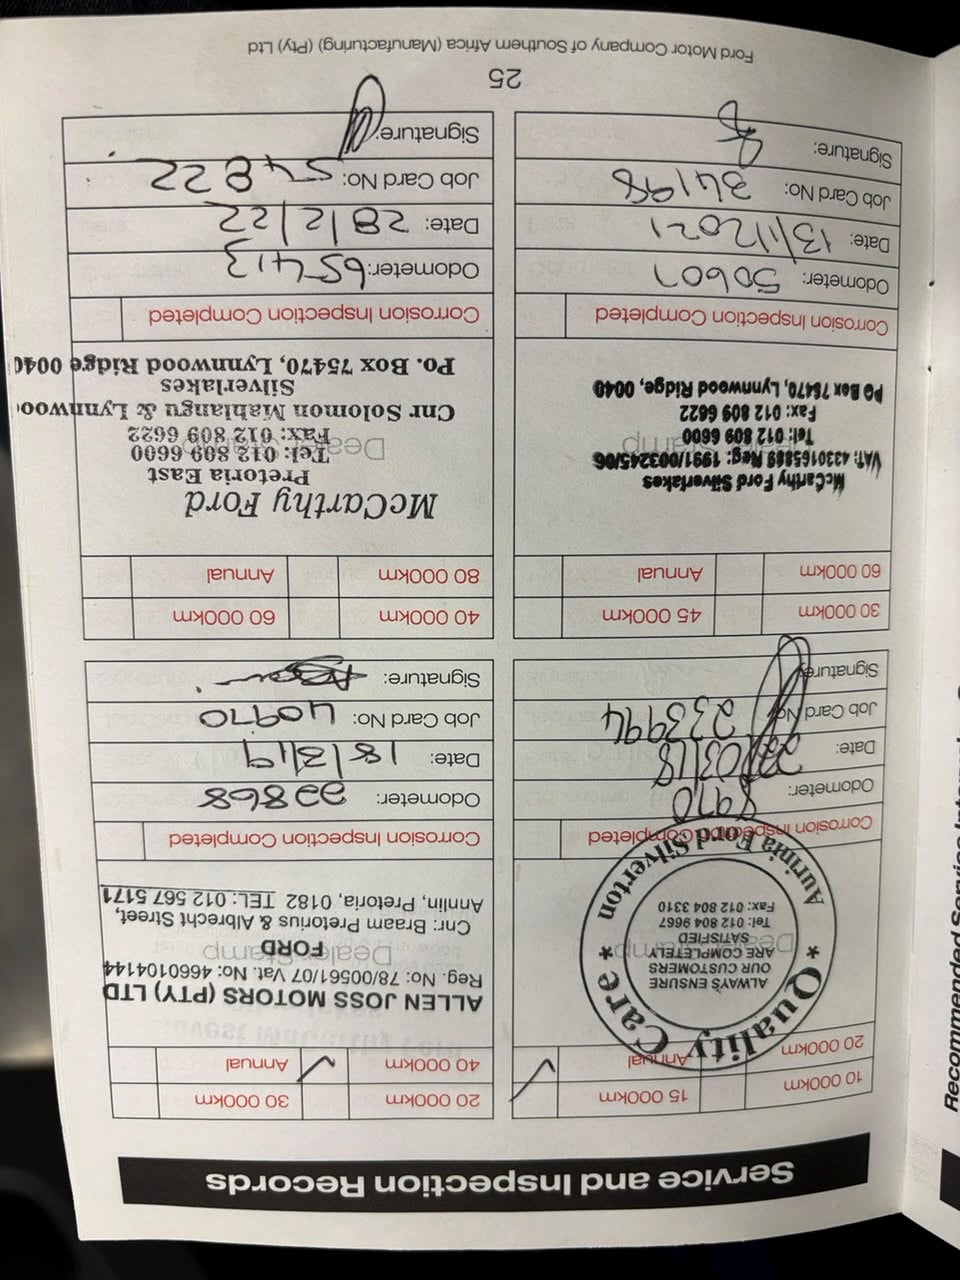 Service and Inspection Records
10 000km 15 000km
20 000km Annual
Dealer Stamp
★ Quality Care ★
ALWAYS ENSURE
OUR CUSTOMERS
ARE COMPLETELY
SATISFIED
Tel: 012 804 9667
Fax: 012 804 3310
Ford Silverton
Corrosion Inspection Completed
Odometer: 8970
Date: 22/03/18
Job Card No: 233994
Signature:
20 000km 30 000km
40 000km Annual
ALLEN JOSS MOTORS (PTY) LTD
Reg. No: 78/00561/07 Vat. No: 4660104144
Dealer Stamp
FORD
Cnr: Braam Pretorius & Albrecht, Street,
Annlin, Pretoria, 0182 TEL: 012 567 5171
Corrosion Inspection Completed
Odometer: 22868
Date: 18/3/19
Job Card No: 40970
Signature:
30 000km 45 000km
60 000km Annual
McCarthy Ford Silverlakes
VAT: 4330165889 Reg: 1991/003245/06
Dealer Stamp
Tel: 012 809 6600
Fax: 012 809 6622
PO Box 75470, Lynnwood Ridge, 0040
Corrosion Inspection Completed
Odometer: 50607
Date: 13/1/2021
Job Card No: 34198
Signature:
40 000km 60 000km
80 000km Annual
McCarthy Ford
Pretoria East
Tel: 012 809 6600
Dealer Stamp
Fax: 012 809 6622
Cnr Solomon Mahlangu & Lynnwoo
Silverlakes
Po. Box 75470, Lynnwood Ridge 0040
Corrosion Inspection Completed
Odometer: 65413
Date: 28/2/22
Job Card No: 54822
Signature:
25
Ford Motor Company of Southern Africa (Manufacturing) (Pty) Ltd
Recommended Service